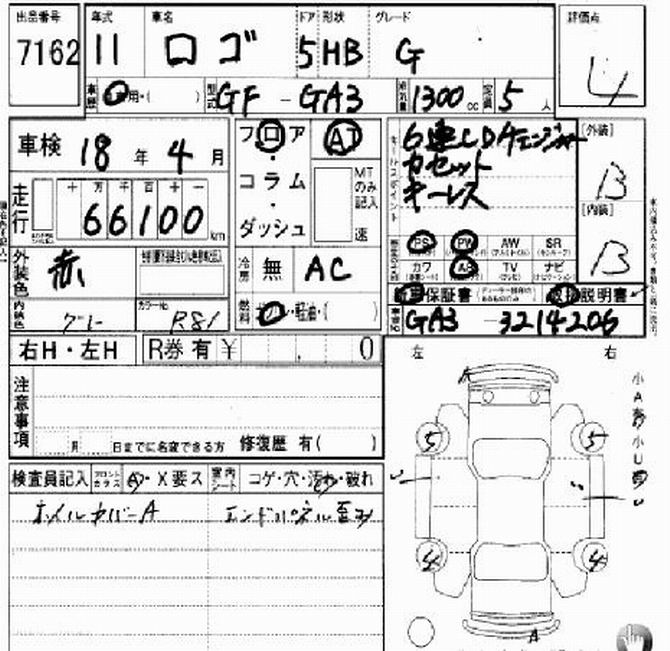 出品番号 年式 車名 ドア 形状 グレード 評価点
7162 11 ロゴ 5 HB G 4
車歴 用・( ) 型式 GF - GA3 排気量 1300 cc 定員 5 人
車検 18 年 4 月
フロア AT
6連CDチェンジャー
カセット
キーレス
[外装]
B
走行 十 万 千 百 十 一
66100 km
コラム
ダッシュ
MTのみ記入 速
[内装]
B
PS PW AW SR
カワ AB TV ナビ
外装色 赤
冷房 無 AC
保証書 取扱説明書
内装色 グレー カラーNo. R81
燃料 ・軽油・( )
GA3 - 3214206
右H・左H R券 有 ¥ 0
左 右
注意事項
月 日までに名変できる方 修復歴 有( )
小A有 小U有
A
5 5
検査員記入 フロントガラス A・X要ス 室内シート コゲ・穴・汚れ・破れ
ホイルカバーA エンドパネル歪み
4 4
A